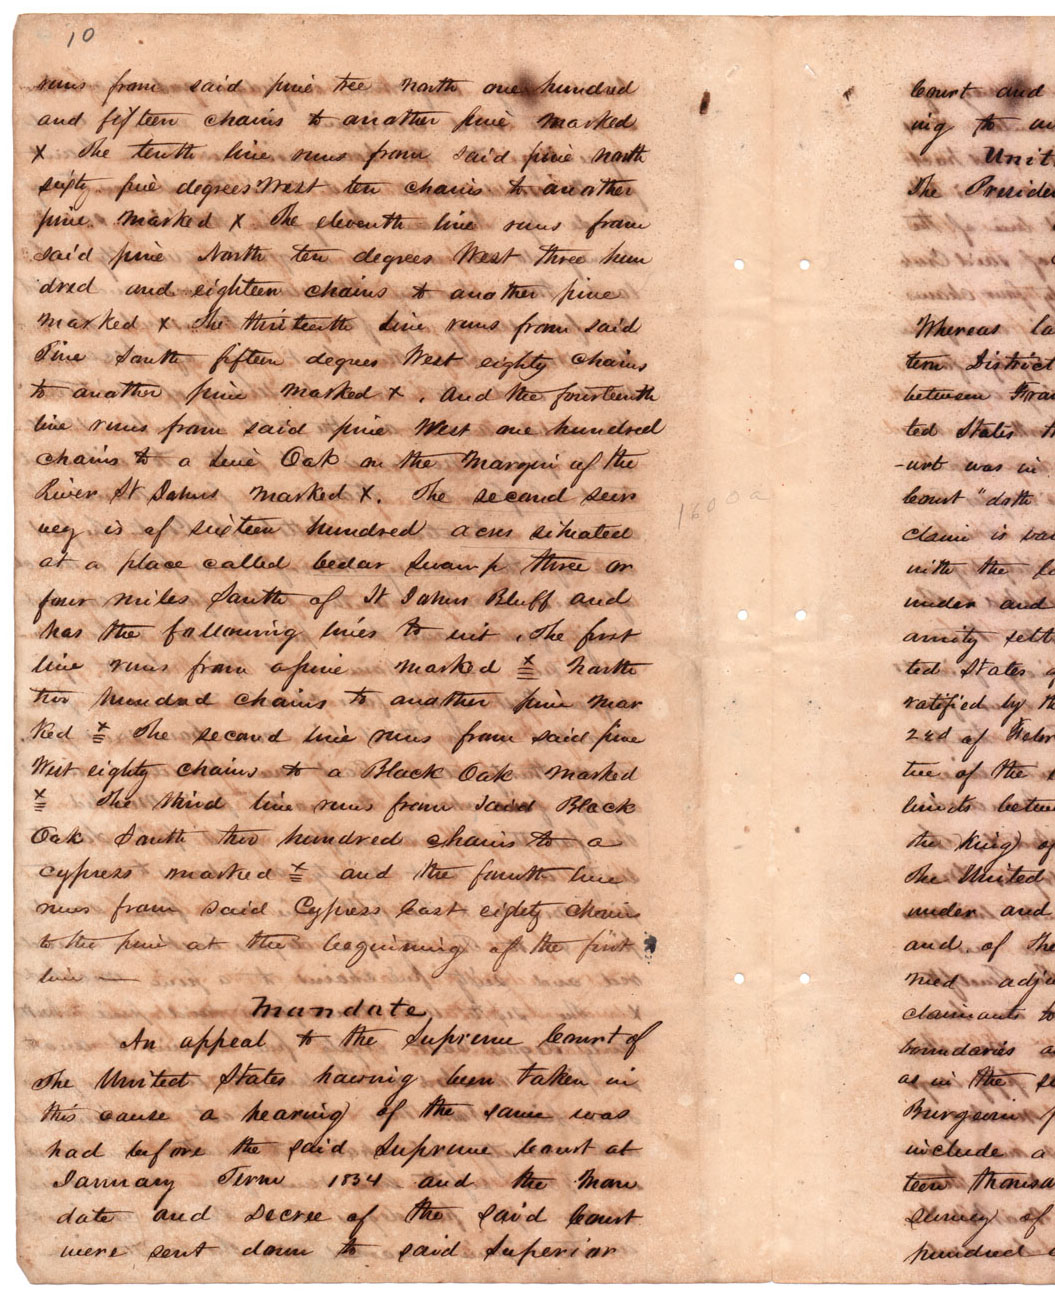 10
runs from said pine tree north one hundred
and fifteen chains to another pine marked
x The tenth line runs from said pine north
sixty five degrees West ten chains to another
pine marked x The eleventh line runs from
said pine North ten degrees West three hun
dred and eighteen chains to another pine
marked x The thirteenth line runs from said
Pine South fifteen degrees West eighty chains
to another pine marked x. and the fourteenth
line runs from said pine West one hundred
chains to a Live Oak on the Margin of the
River St Johns marked x. The second sur
vey is of sixteen hundred acres situated
at a place called Cedar Swamp three or
four miles South of St Johns Bluff and
has the following lines to wit. The first
line runs from a pine marked x north
two hundred chains to another pine mar
ked x The second line runs from said pine
West eighty chains to a Black Oak marked
x The third line runs from said Black
Oak South two hundred chains to a
cypress marked x and the fourth line
runs from said Cypress East eighty chains
to the pine at the beginning of the first
line —
Mandate
An appeal to the Supreme Court of
The United States having been taken in
this cause a hearing of the same was
had before the said Supreme Court at
January Term 1834 and the Man
date and Decree of the said Court
were sent down to said Superior
160 a
Court and
ing to
Unit
The Preside
Whereas la
tern District
between Fran
ted States
-urt was in
Court "doth
claim is
with the
under and
amity sett
ted States
ratified by th
22d of Febr
tee of the
limits betwe
the King of
The United
under and
and of The
med adju
claimants to
boundaries a
as in the
Burgevin
include a
teen thousa
survey of
hundred